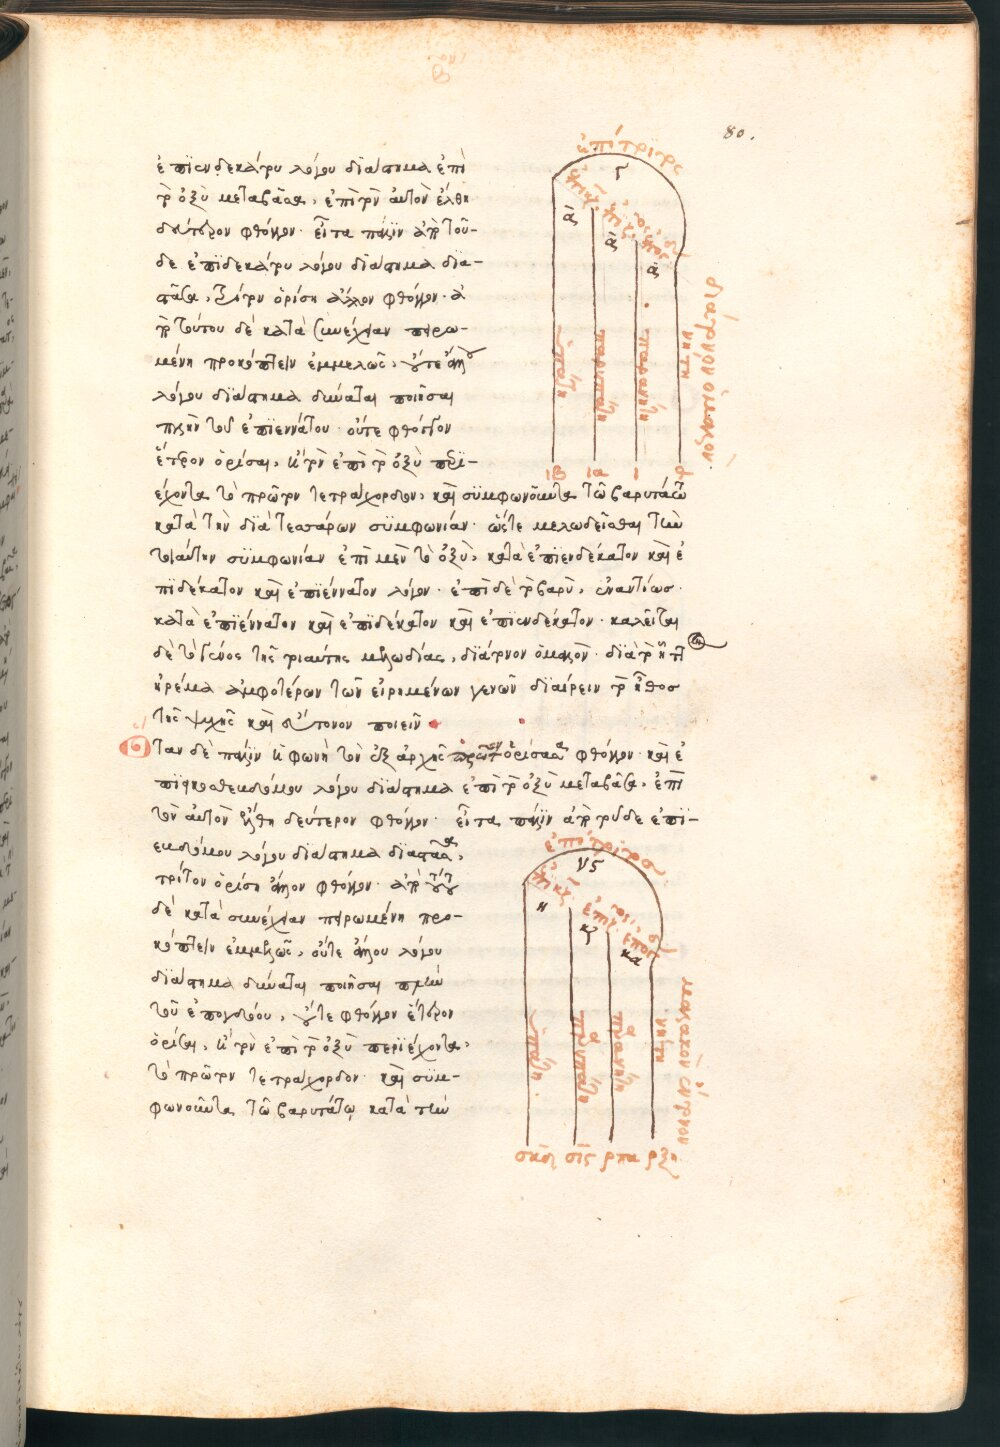 80.
ἐπιενδεκάτου λόγου διάστημα ἐπὶ
τὸ ὀξὺ μεταβᾶσα, ἐπὶ τὸν αὐτὸν ἔλθη
δεύτερον φθόγγον· εἶτα πάλιν ἀπὸ τοῦ-
δε ἐπιδεκάτου λόγου διάστημα δια-
στᾶσα, τρίτον ὁρίση ἄλλον φθόγγον· ἀ
πὸ τούτου δὲ κατὰ συνέχειαν πειρω-
μένη προκόπτειν ἐμμελῶς, οὔτε ἄλλου
λόγου διάστημα δύναται ποιῆσαι
πλὴν τοῦ ἐπιεννάτου· οὔτε φθόγγον
ἕτερον ὁρίσαι, ἢ τὸν ἐπὶ τὸ ὀξὺ περι-
έχοντα τὸ πρῶτον τετράχορδον, καὶ συμφωνοῦντα τῶ βαρυτάτω
κατὰ τὴν διὰ τεσσάρων συμφωνίαν· ὥστε μελωδεῖσθαι τὴν
τοιαύτην συμφωνίαν ἐπὶ μὲν τὸ ὀξὺ, κατὰ ἐπιενδέκατον καὶ ἐ
πιδέκατον καὶ ἐπιέννατον λόγον· ἐπὶ δὲ τὸ βαρὺ, ἐναντίως·
κατὰ ἐπιέννατον καὶ ἐπιδέκατον καὶ ἐπιενδέκατον· καλεῖται
δὲ τὸ γένος τῆς τοιαύτης μελωδίας, διάτονον ὁμαλὸν· διὰ τὸ
ἠρέμα ἀμφοτέρων τῶν εἰρημένων γενῶν διαίρειν τὸ ἦθος
τῆς ψυχῆς καὶ σύντονον ποιεῖν
Ὅταν δὲ πάλιν ἡ φωνὴ τὸν ἐξ ἀρχῆς ὁρίσασα φθόγγον· καὶ ἐ
πιεικοσθεβδόμου λόγου διάστημα ἐπὶ τὸ ὀξὺ μεταβᾶσα, ἐπὶ
τὸν αὐτὸν ἔλθη δεύτερον φθόγγον· εἶτα πάλιν ἀπὸ τοῦδε ἐπι-
εβδόμου λόγου διάστημα διαστᾶσα,
τρίτον ὁρίση ἄλλον φθόγγον· ἀπὸ τούτου
δὲ κατὰ συνέχειαν πειρωμένη προ-
κόπτειν ἐμμελῶς, οὔτε ἄλλου λόγου
διάστημα δύναται ποιῆσαι πλὴν
τοῦ ἐπογδόου, οὔτε φθόγγον ἕτερον
ὁρίσαι, ἢ τὸν ἐπὶ τὸ ὀξὺ περιέχοντα,
τὸ πρῶτον τετράχορδον· καὶ συμ-
φωνοῦντα τῶ βαρυτάτω, κατὰ τὴν
ἐπίτριτος
Γ
α α α
ὑπάτη
παρυπάτη
παρανήτη
νήτη
διάτονον ὁμαλόν·
ιβ ια ι θ
ἐπίτριτος
νς
η κζ κα
ὑπάτη
παρυπάτη
παρανήτη
νήτη
μαλακὸν ἔντονον
σκδ σις ρπθ ρξη